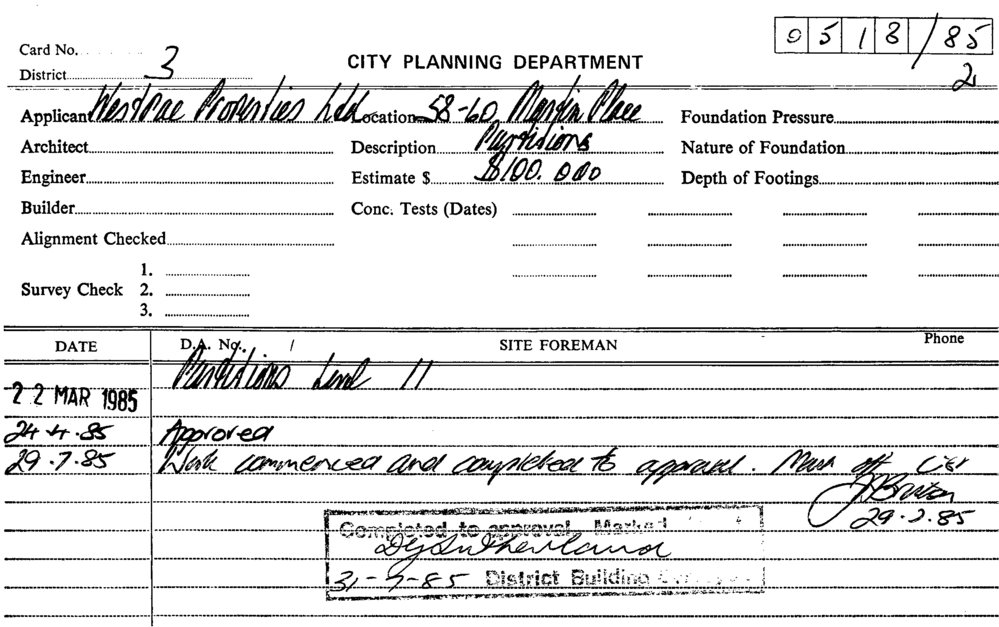 0518/85
Card No.
District 3
CITY PLANNING DEPARTMENT
2
Applicant Westrac Properties Ltd Location 58-60 Martin Place Foundation Pressure
Architect Description Partitions Nature of Foundation
Engineer Estimate $ $100.000 Depth of Footings
Builder Conc. Tests (Dates)
Alignment Checked
1.
Survey Check 2.
3.
DATE D.A. No. / SITE FOREMAN Phone
22 MAR 1985 Partitions Level 11
24.4.85 Approved
29.7.85 Work commenced and completed to approval. Mark off
29.7.85
Completed to approval. Marked
31-7-85 District Building